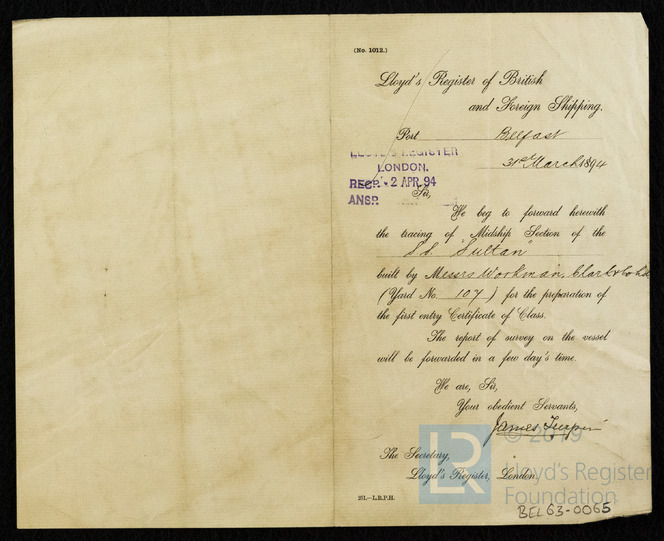 (No. 1012.)
Lloyd's Register of British
and Foreign Shipping.
Port Belfast
31st March 1894
LLOYD'S REGISTER
LONDON.
RECD. 2 APR. 94
ANSD.
Sir,
We beg to forward herewith
the tracing of Midship Section of the
S.S. "Sultan"
built by Messrs Workman, Clark & Co Ltd
(Yard No. 107) for the preparation of
the first entry Certificate of Class.
The report of survey on the vessel
will be forwarded in a few day's time.
We are, Sir,
Your obedient Servants,
James Turpin
The Secretary,
Lloyd's Register, London.
251.—L.R.P.H.
LR
© 2019
Lloyd's Register
Foundation
BEL63-0065